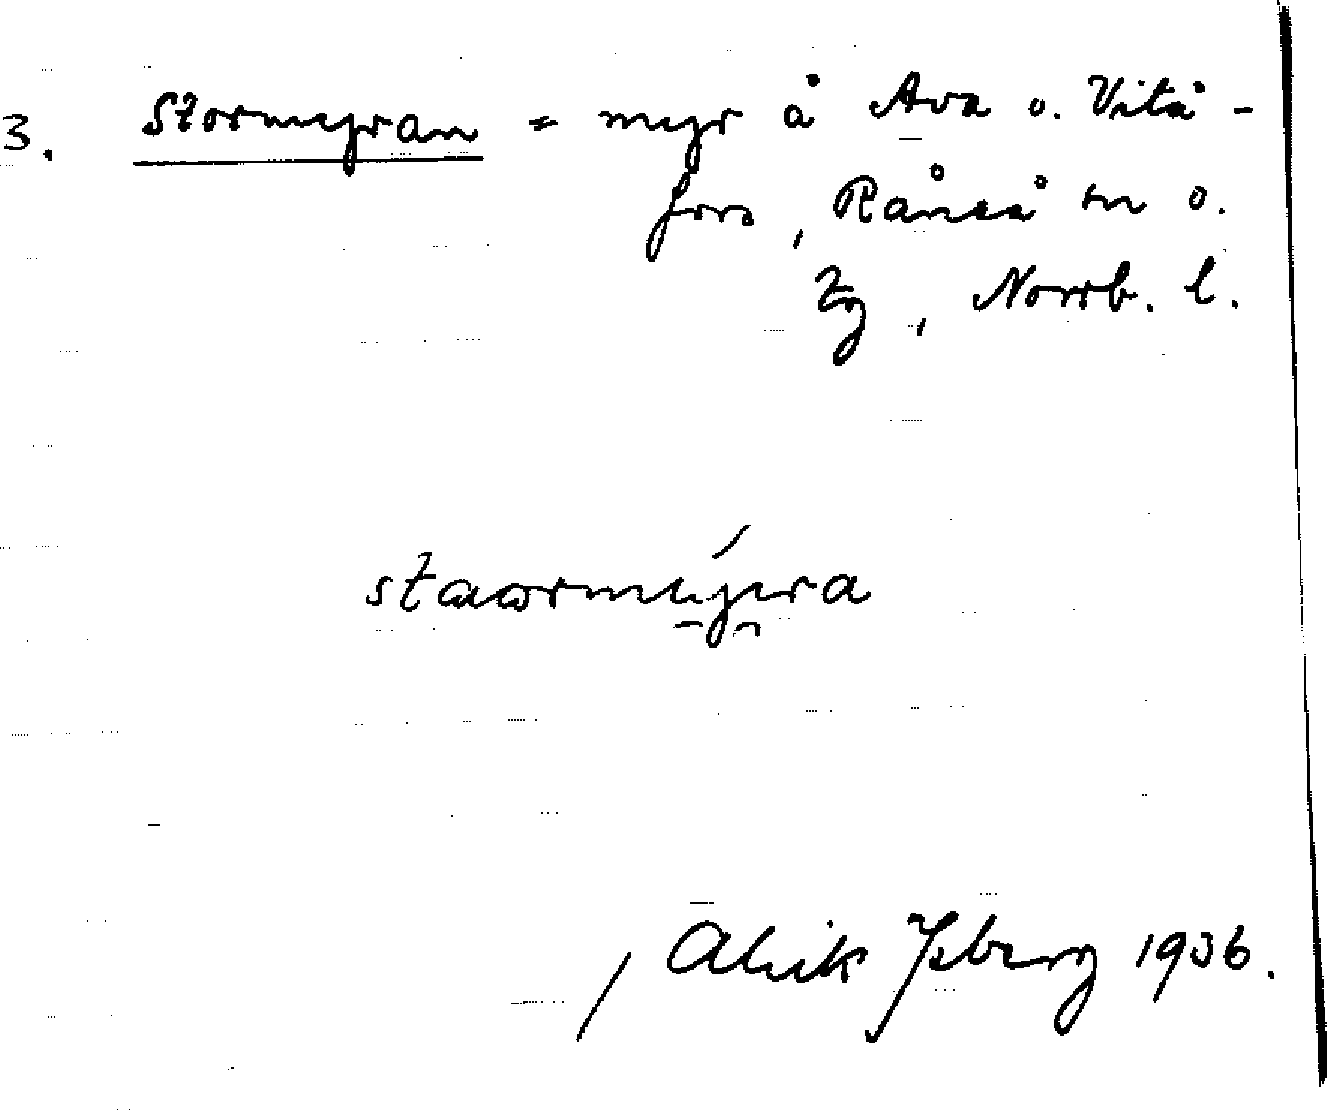 3. Stormyran = myr å Ava o. Vitå-
fors, Råneå sn o.
tg, Norrb. l.
staormyra
/ Alvik Isberg 1936.